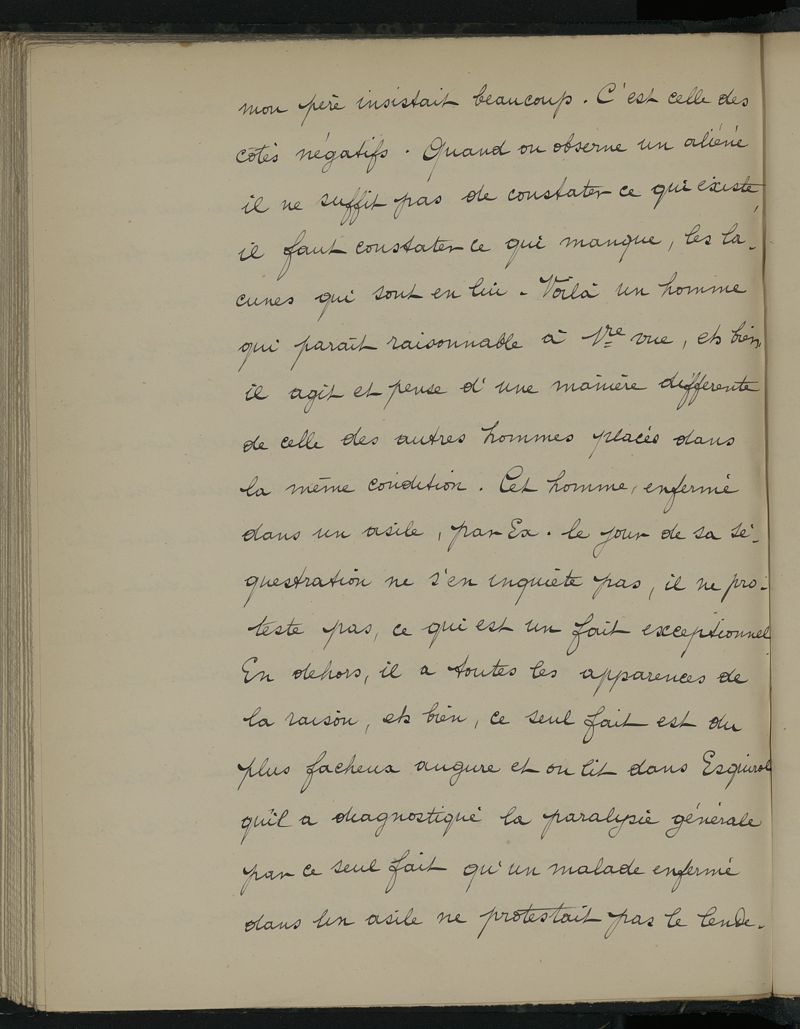 mon père insistait beaucoup. C'est celle des
côtés négatifs. Quand on observe un aliéné
il ne suffit pas de constater ce qui existe,
il faut constater ce qui manque, les la-
cunes qui sont en lui. Voilà un homme
qui paraît raisonnable à 1re vue, eh bien,
il agit et pense d'une manière différente
de celle des autres hommes placés dans
la même condition. Cet homme, enfermé
dans un asile, par Ex. le jour de sa sé-
questration ne s'en inquiète pas, il ne pro-
teste pas, ce qui est un fait exceptionnel
En dehors, il a toutes les apparences de
la raison, eh bien, ce seul fait est du
plus facheux augure et on lit dans Esquirol
qu'il a diagnostiqué la paralysie générale
par ce seul fait qu'un malade enfermé
dans un asile ne protestait pas le lende-